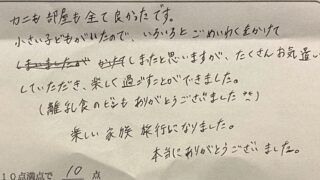 カニも部屋も全て良かったです。
小さい子どもがいたので、いろいろとごめいわくをかけて
しまったと思いますが、たくさんお気遣い
していただき、楽しく過ごすことができました。
(離乳食のビンもありがとうございました
楽しい家族旅行になりました。
本当にありがとうございました。
10点満点で 10 点